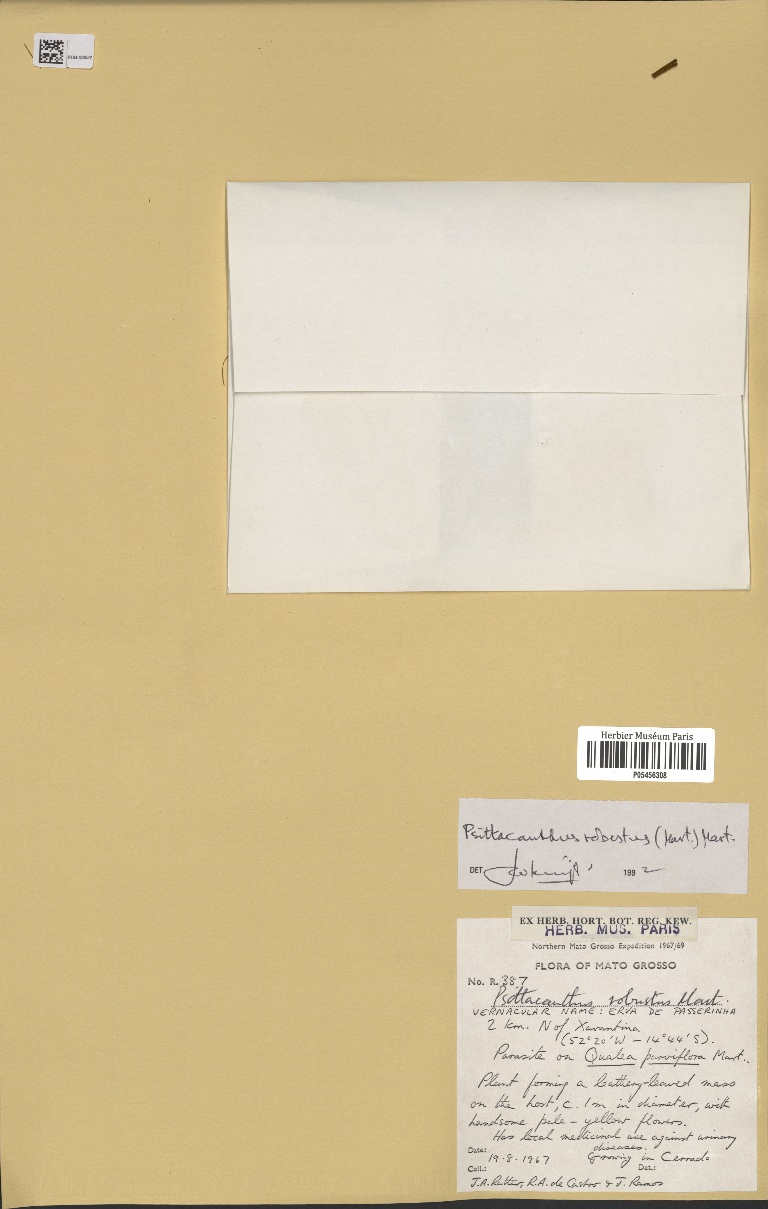 Herbier Muséum Paris
P05456308
Psittacanthus robustus (Mart.) Mart.
DET 1992
EX HERB. HORT. BOT. REG. KEW.
HERB. MUS. PARIS
Northern Mato Grosso Expedition 1967/69
FLORA OF MATO GROSSO
No. R. 387
Psittacanthus robustus Mart.
VERNACULAR NAME: ERVA DE PASSERINHA
2 km. N of Xavantina
(52°20'W - 14°44'S).
Parasite on Qualea parviflora Mart.
Plant forming a leathery-leaved mass
on the host, c. 1m in diameter, with
handsome pale-yellow flowers.
Has local medicinal use against urinary
diseases.
Date: 19.8.1967 Growing in Cerrado
Coll.: Det.:
J.A. Ratter, R.A. de Castro & J. Ramos